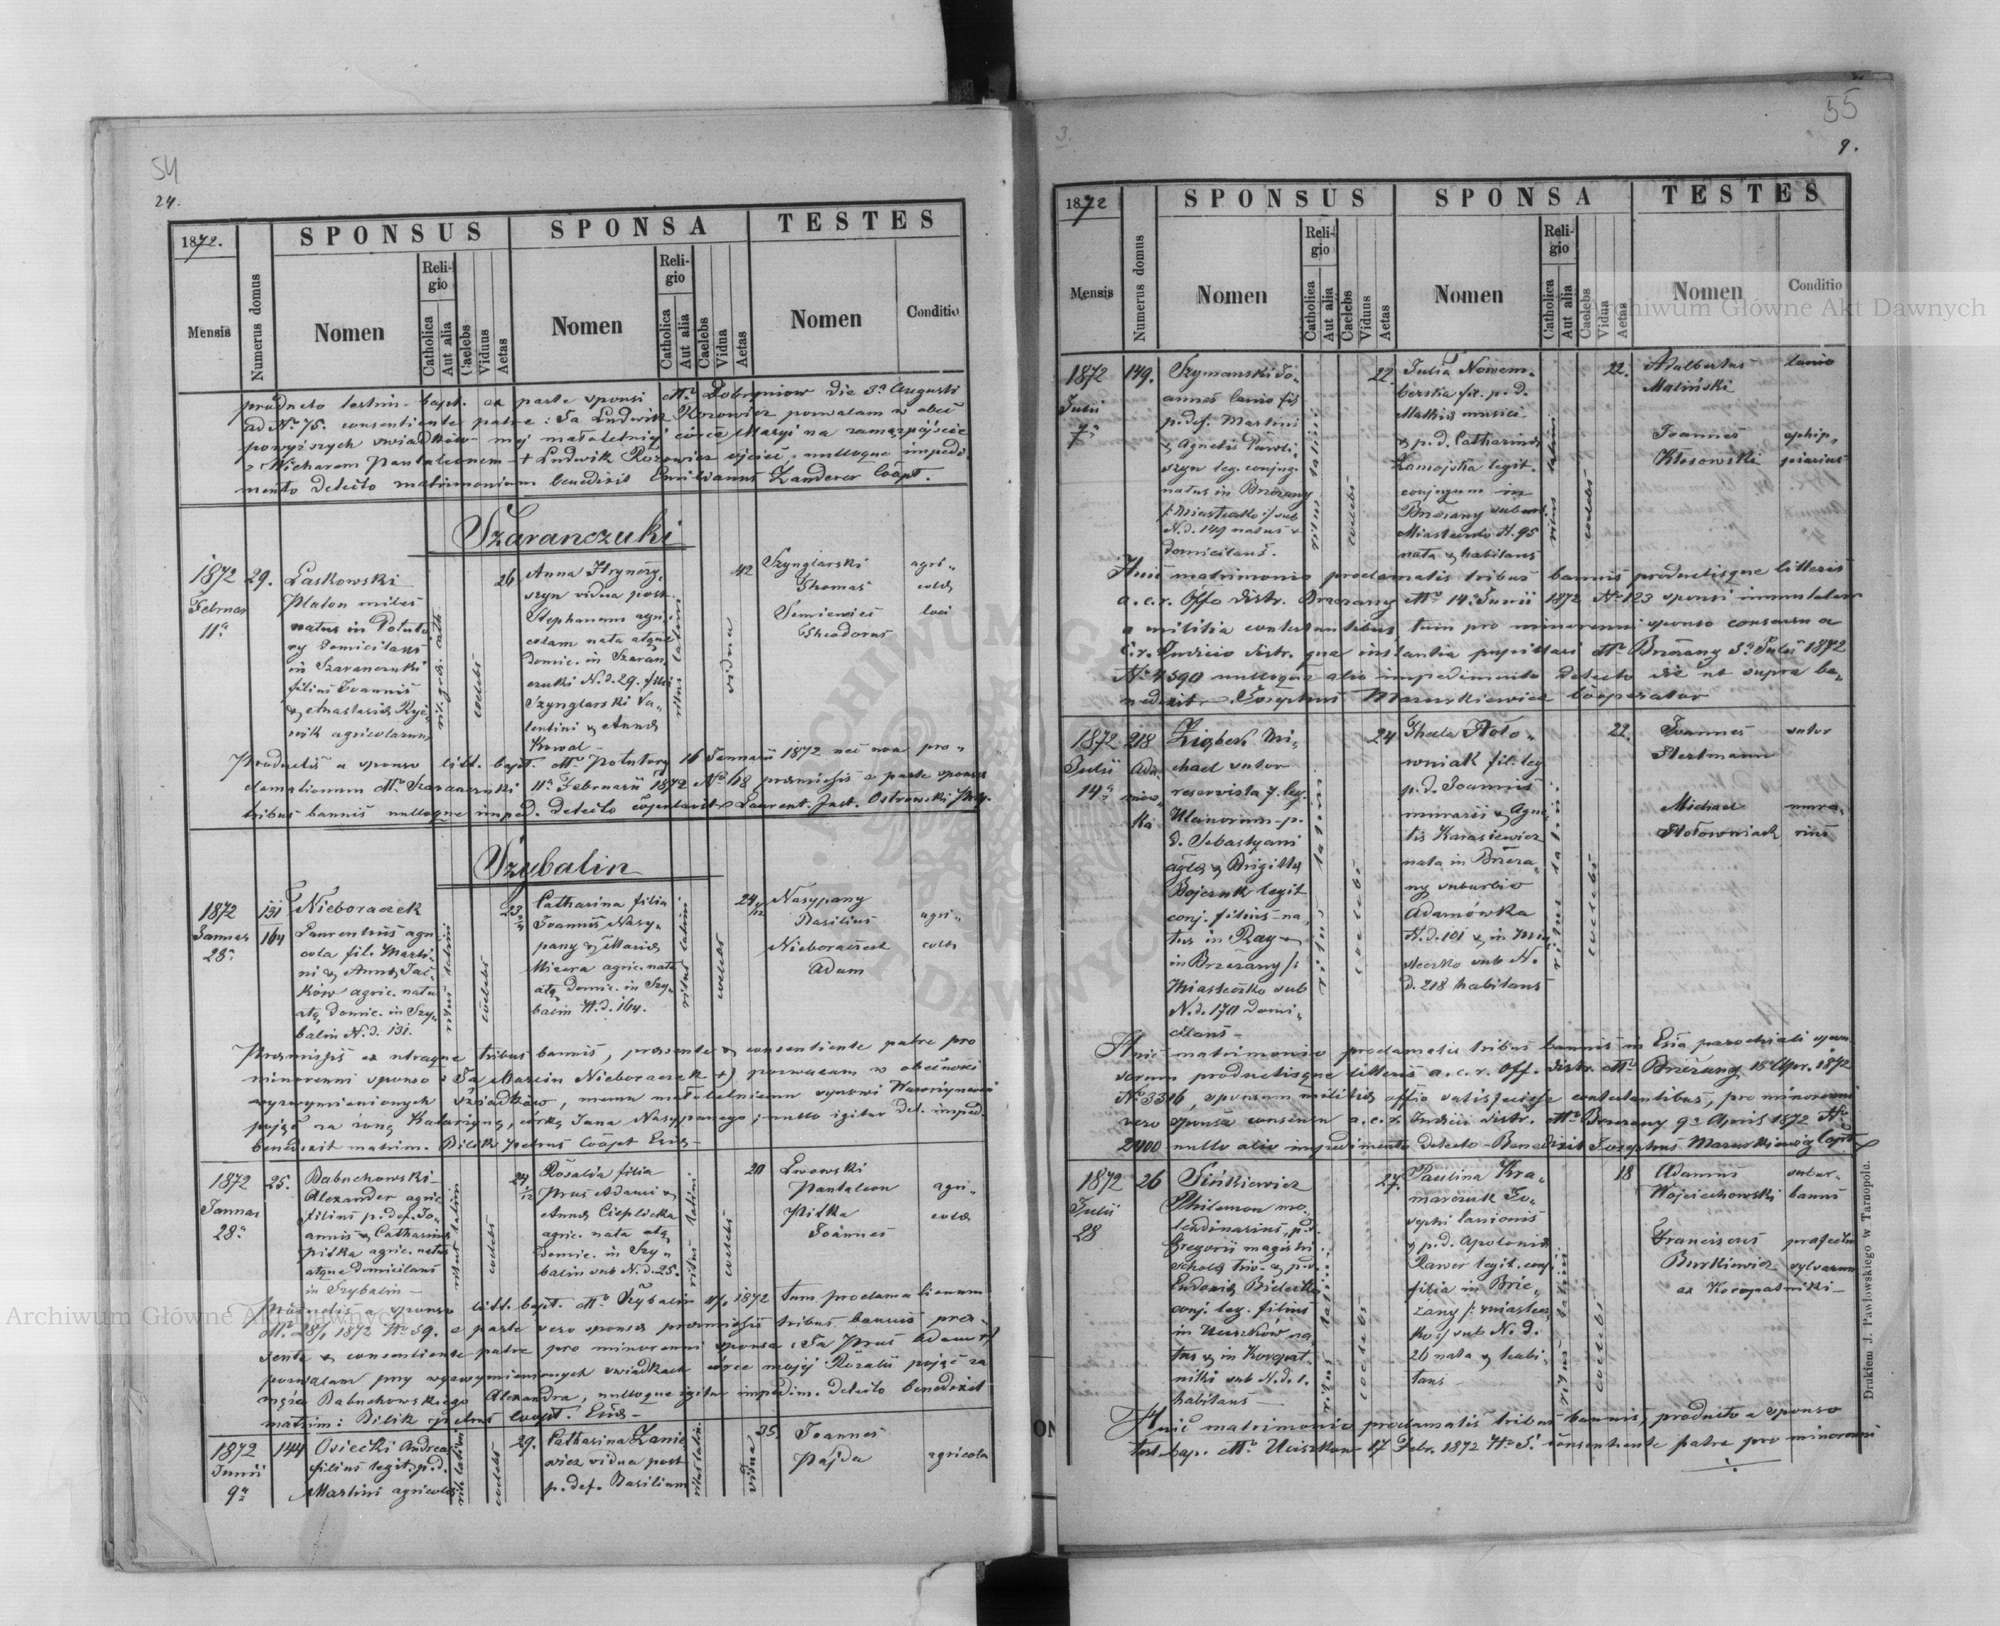 54
24.
1872.
SPONSUS SPONSA TESTES
Mensis
Numerus domus
Nomen
Religio
Catholica
Aut alia
Caelebs
Viduus
Aetas
Nomen
Religio
Catholica
Aut alia
Caelebs
Vidua
Aetas
Nomen
Conditio
producto testim. bapt. ex parte sponsi
ad No 75. consentiente patre: Ja Ludwik Rozowicz pozwalam w obec
powyższych świadków mej małoletniej córce Maryi na zamążpójście
z Micharem Pantaleonem + Ludwik Rozowicz ojciec, nulloque impedi
mento detecto matrimonium benedixit Emilianus Zanderer Coopt.
Szaranczuki
1872
Februar
11a
29.
Laskowski
Platon miles
natus in Potuto
ry domicilans
in Szaranczuki
filius Joannis
& Anastasia
agricolarum
rit. gr. cath.
coelebs
26
Anna
szyn vidua post
Stephanum agri
colam nata atque
domic. in Szaran
czuki N.d. 29. filia
Szynglarski Va
lentini & Anna
Kowal
ritus latini
vidua
42
Szynglarski
Thomas
Theodorus
agri
colae
loci
Productis a sponso litt. bapt. Potutory 16 Januarii 1872 nec non pro
clamationum Szaranczuki 11a Februarii 1872 No 48 praemissis e parte sponsae
tribus bannis nulloque imped. detecto Laurent. Just. Ostrowski
Szybalin
1872
Januar
28a
131
164
Nieboraczek
Laurentius agri
cola fil. Marti
ni & Anna
agric. natus
atq domic. in Szy
balin N.d. 131.
ritus latini
coelebs
23
Catharina filia
Joannis Nasy
pany & Maria
Mizera agric. nata
atq domic. in Szy
balin N.d. 164.
ritus latini
coelebs
24
Nasypany
Basilius
Nieboraczek
Adam
agri
colae
Praemissis ex utraque tribus bannis, praesente & consentiente patre pro
minorenni sponso: Ja Marcin Nieboraczek +) pozwalam w obecności
wyżwymienionych świadków, memu małoletniemu synowi Wawrzyncowi
pojąć za żonę Katarzynę, córkę Jana Nasypanego; nullo igitur det. imped.
benedixit matrim. Bilik Petrus Coopt
1872
Januar
28a
25.
Babuchowski
Alexander agric
filius p. def. Jo
annis & Catharina
Pitka agric. natus
atque domicilans
in Szybalin
ritus latini
coelebs
24
Rosalia filia
Prus Adami &
Anna Cieplicka
agric. nata atq
domic. in Szy
balin sub N.d. 25.
ritus latini
coelebs
20
Lwowski
Pantaleon
Pitka
Joannes
agri
colae
Productis a sponso litt. bapt. Szybalin 1872 tum proclamationum
28/1 1872 No 59. e parte vero sponsa praemissis tribus bannis prae
sente & consentiente patre pro minorenni sponsa: Ja Prus Adam +)
pozwalam przy wyżwymienionych świadkach córce mojej Rozalii pójść za
męża Babuchowskiego Alexandra, nulloque igitur impedim. detecto benedixit
matrim: Bilik Petrus Coopt.
1872
Junii
9a
144
Osiecki Andreas
filius legit. p.d.
Martini agricola
rit. latini
coelebs
29.
Catharina Zanie
wicz vidua post
p. def. Basilium
rit. latin.
vidua
35.
Joannes
Pajda
agricola
55
3.
9.
1872
SPONSUS SPONSA TESTES
Mensis
Numerus domus
Nomen
Religio
Catholica
Aut alia
Caelebs
Viduus
Aetas
Nomen
Religio
Catholica
Aut alia
Caelebs
Vidua
Aetas
Nomen
Conditio
1872
Julii
7a
149.
Szymanski Jo
annes lanio fil
p. def. Martini
& Agnetis Pawli
szyn leg. conjug.
natus in Brzezany
/:Miasteczko:/ sub
N.d. 149 natus &
domicilans.
ritus latini
coelebs
22.
Julia Nowem
berska fil. p.d.
Mathia musici
& p.d. Catharina
Zamojska legit.
conjugum in
Brzezany suburb
Miasteczko N. 95
nata & habitans
ritus latini
coelebs
22.
Adalbertus
Maliński
Joannes
Kłosowski
lanio
ephip
piarius
Huic matrimonio proclamatis tribus bannis productisque litteris
a c.r. Offo distr. Brzezany 14. Junii 1872 No 123 sponsi immunitatem
a militia contestantibus, tum pro minorenni sponso consensu a
c.r. Judicio distr. qua instantia pupillari Brzezany 3a Julii 1872
No 4590 nulloque alio impedimento detecto die ut supra be
nedixit Josephus Mazurkiewicz Cooperator
1872
Julii
14a
218
Adamowka
Michael sutor
reservista 7. leg.
Ulanorum p.
d. Sebastyani
& Brigitta
Bojczuk legit
conj. filius na
tus in Ray &
in Brzezany /:
Miasteczko sub
N.d. 170 domi
cilans
ritus latini
coelebs
24
Thecla Stoło
wniak fil. leg
p.d. Joannis
murarii & Agne
tis Karasiewicz
nata in Brzeza
ny suburbio
Adamówka
N.d. 101 & in Mia
steczko sub N.
d. 218 habitans
ritus latini
coelebs
22.
Joannes
Stertmann
Michael
Stołowniack
sutor
mura
rius
Huic matrimonio proclamatis tribus bannis in parochiali
productisque litteris a c.r. Off. distr. Brzezany 18 Apr. 1872
No 3316, sponsum militiae offio satisfecisse contestantibus, pro minorenni
vero sponsa consensu a c.r. Judicii distr. Brzezany 9a Aprilis 1872 No
2400 nullo alio impedimento detecto Benedixit Josephus Mazurkiewicz Coopt
1872
Julii
28
26
Sińkiewicz
Philemon mo
lendinarius, p.d.
Gregorii magistri
schola triv. & p.d.
Eudoxia Bielecka
conj. leg. filius
in Uciszków na
tus & in Koropat
niki sub N.d. 1.
habitans
ritus latini
coelebs
27.
Paulina Kra
marczuk Jo
sephi lanionis
& p.d. Apolonia
Rawer legit. conj.
filia in Brze
zany /: miastecz
ko:/ sub N.d.
26 nata & habi
tans
ritus latini
coelebs
18
Adamus
Wojciechowski
Franciscus
Burkiewicz
ex Koropatniki
subur
banus
praefectus
sylvarum
Huic matrimonio proclamatis tribus bannis, producto a sponso
test. bap. Uciszkow 17 Febr. 1872 No 5. consentiente patre pro minorenni
Drukiem J. Pawłowskiego w Tarnopolu.
Archiwum Główne Akt Dawnych
Archiwum Główne Akt Dawnych